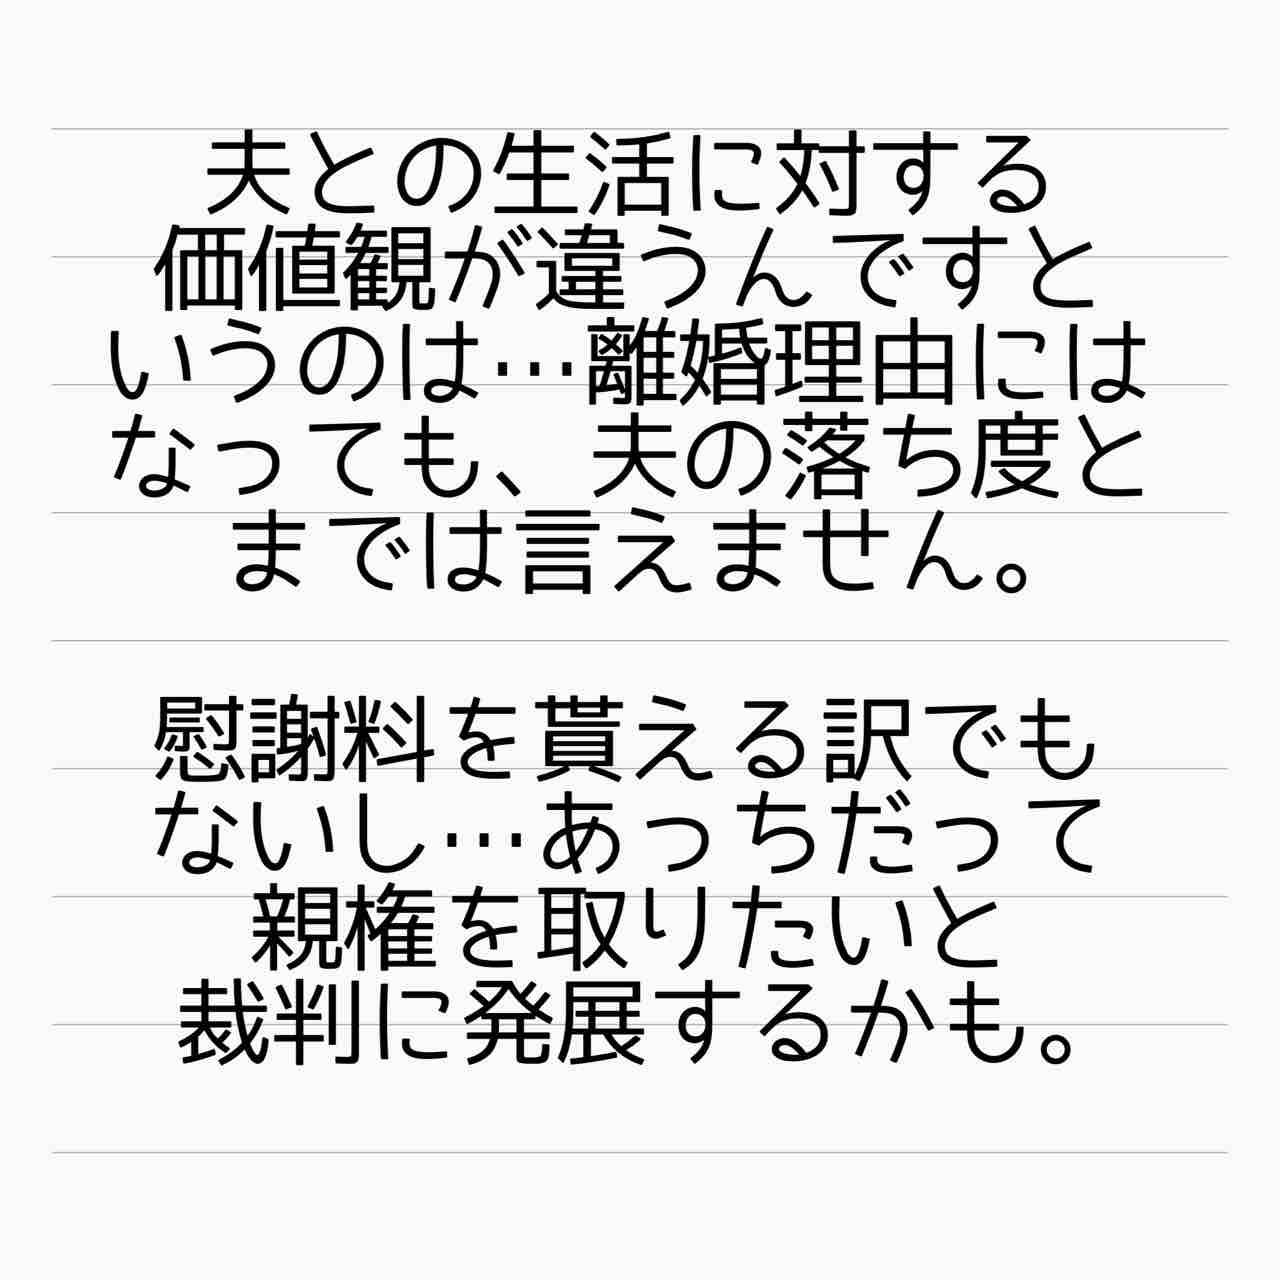 夫との生活に対する
価値観が違うんですと
いうのは…離婚理由には
なっても、夫の落ち度と
までは言えません。
慰謝料を貰える訳でも
ないし…あっちだって
親権を取りたいと
裁判に発展するかも。